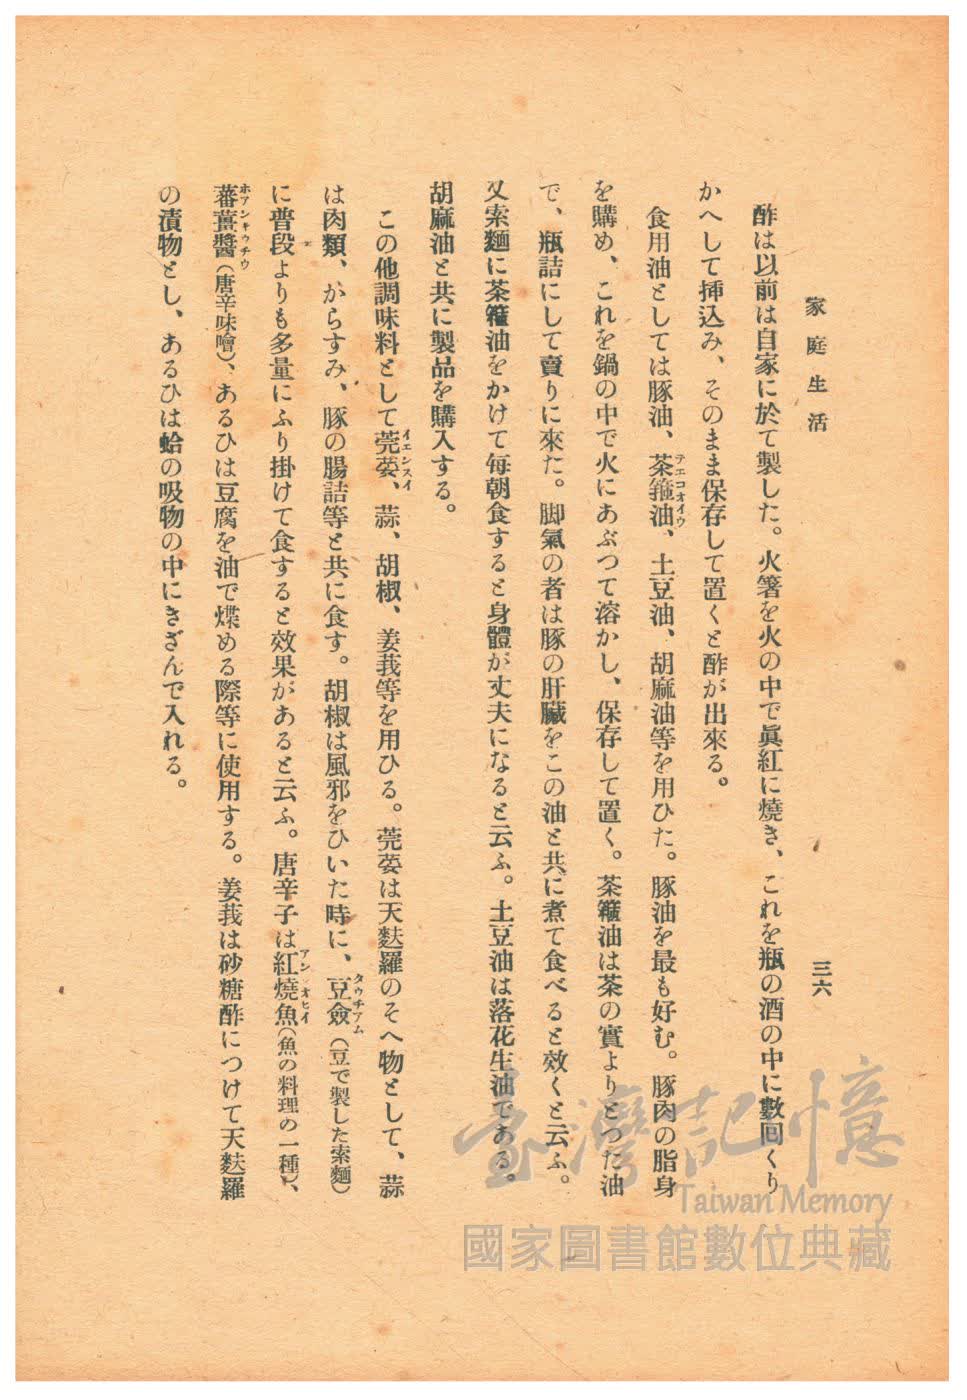 家庭生活
三六
酢は以前は自家に於て製した。火箸を火の中で眞紅に燒き、これを瓶の酒の中に數回くり
かへして揷込み、そのまま保存して置くと酢が出來る。
食用油としては豚油、茶箍油、土豆油、胡麻油等を用ひた。豚油を最も好む。豚肉の脂身
テエコオイウ
を購め、これを鍋の中で火にあぶつて溶かし、保存して置く。茶箍油は茶の實よりとつた油
で、瓶詰にして賣りに來た。脚氣の者は豚の肝臟をこの油と共に煮て食べると效くと云ふ。
又索麵に茶箍油をかけて每朝食すると身體が丈夫になると云ふ。土豆油は落花生油である。
胡麻油と共に製品を購入する。
この他調味料として莞荽、蒜、胡椒、姜莪等を用ひる。莞荽は天麩羅のそへ物として、蒜
イエンスイ
は肉類、からすみ、豚の腸詰等と共に食す。胡椒は風邪をひいた時に、豆僉（豆で製した索麵）
タウチアム
に普段よりも多量にふり掛けて食すると效果があると云ふ。唐辛子は紅燒魚（魚の料理の一種）、
アンオヒイ
蕃薑醬（唐辛味噌）、あるひは豆腐を油で煠める際等に使用する。姜莪は砂糖酢につけて天麩羅
ホアンキウチウ
の漬物とし、あるひは蛤の吸物の中にきざんで入れる。
臺灣記憶
Taiwan Memory
國家圖書館數位典藏